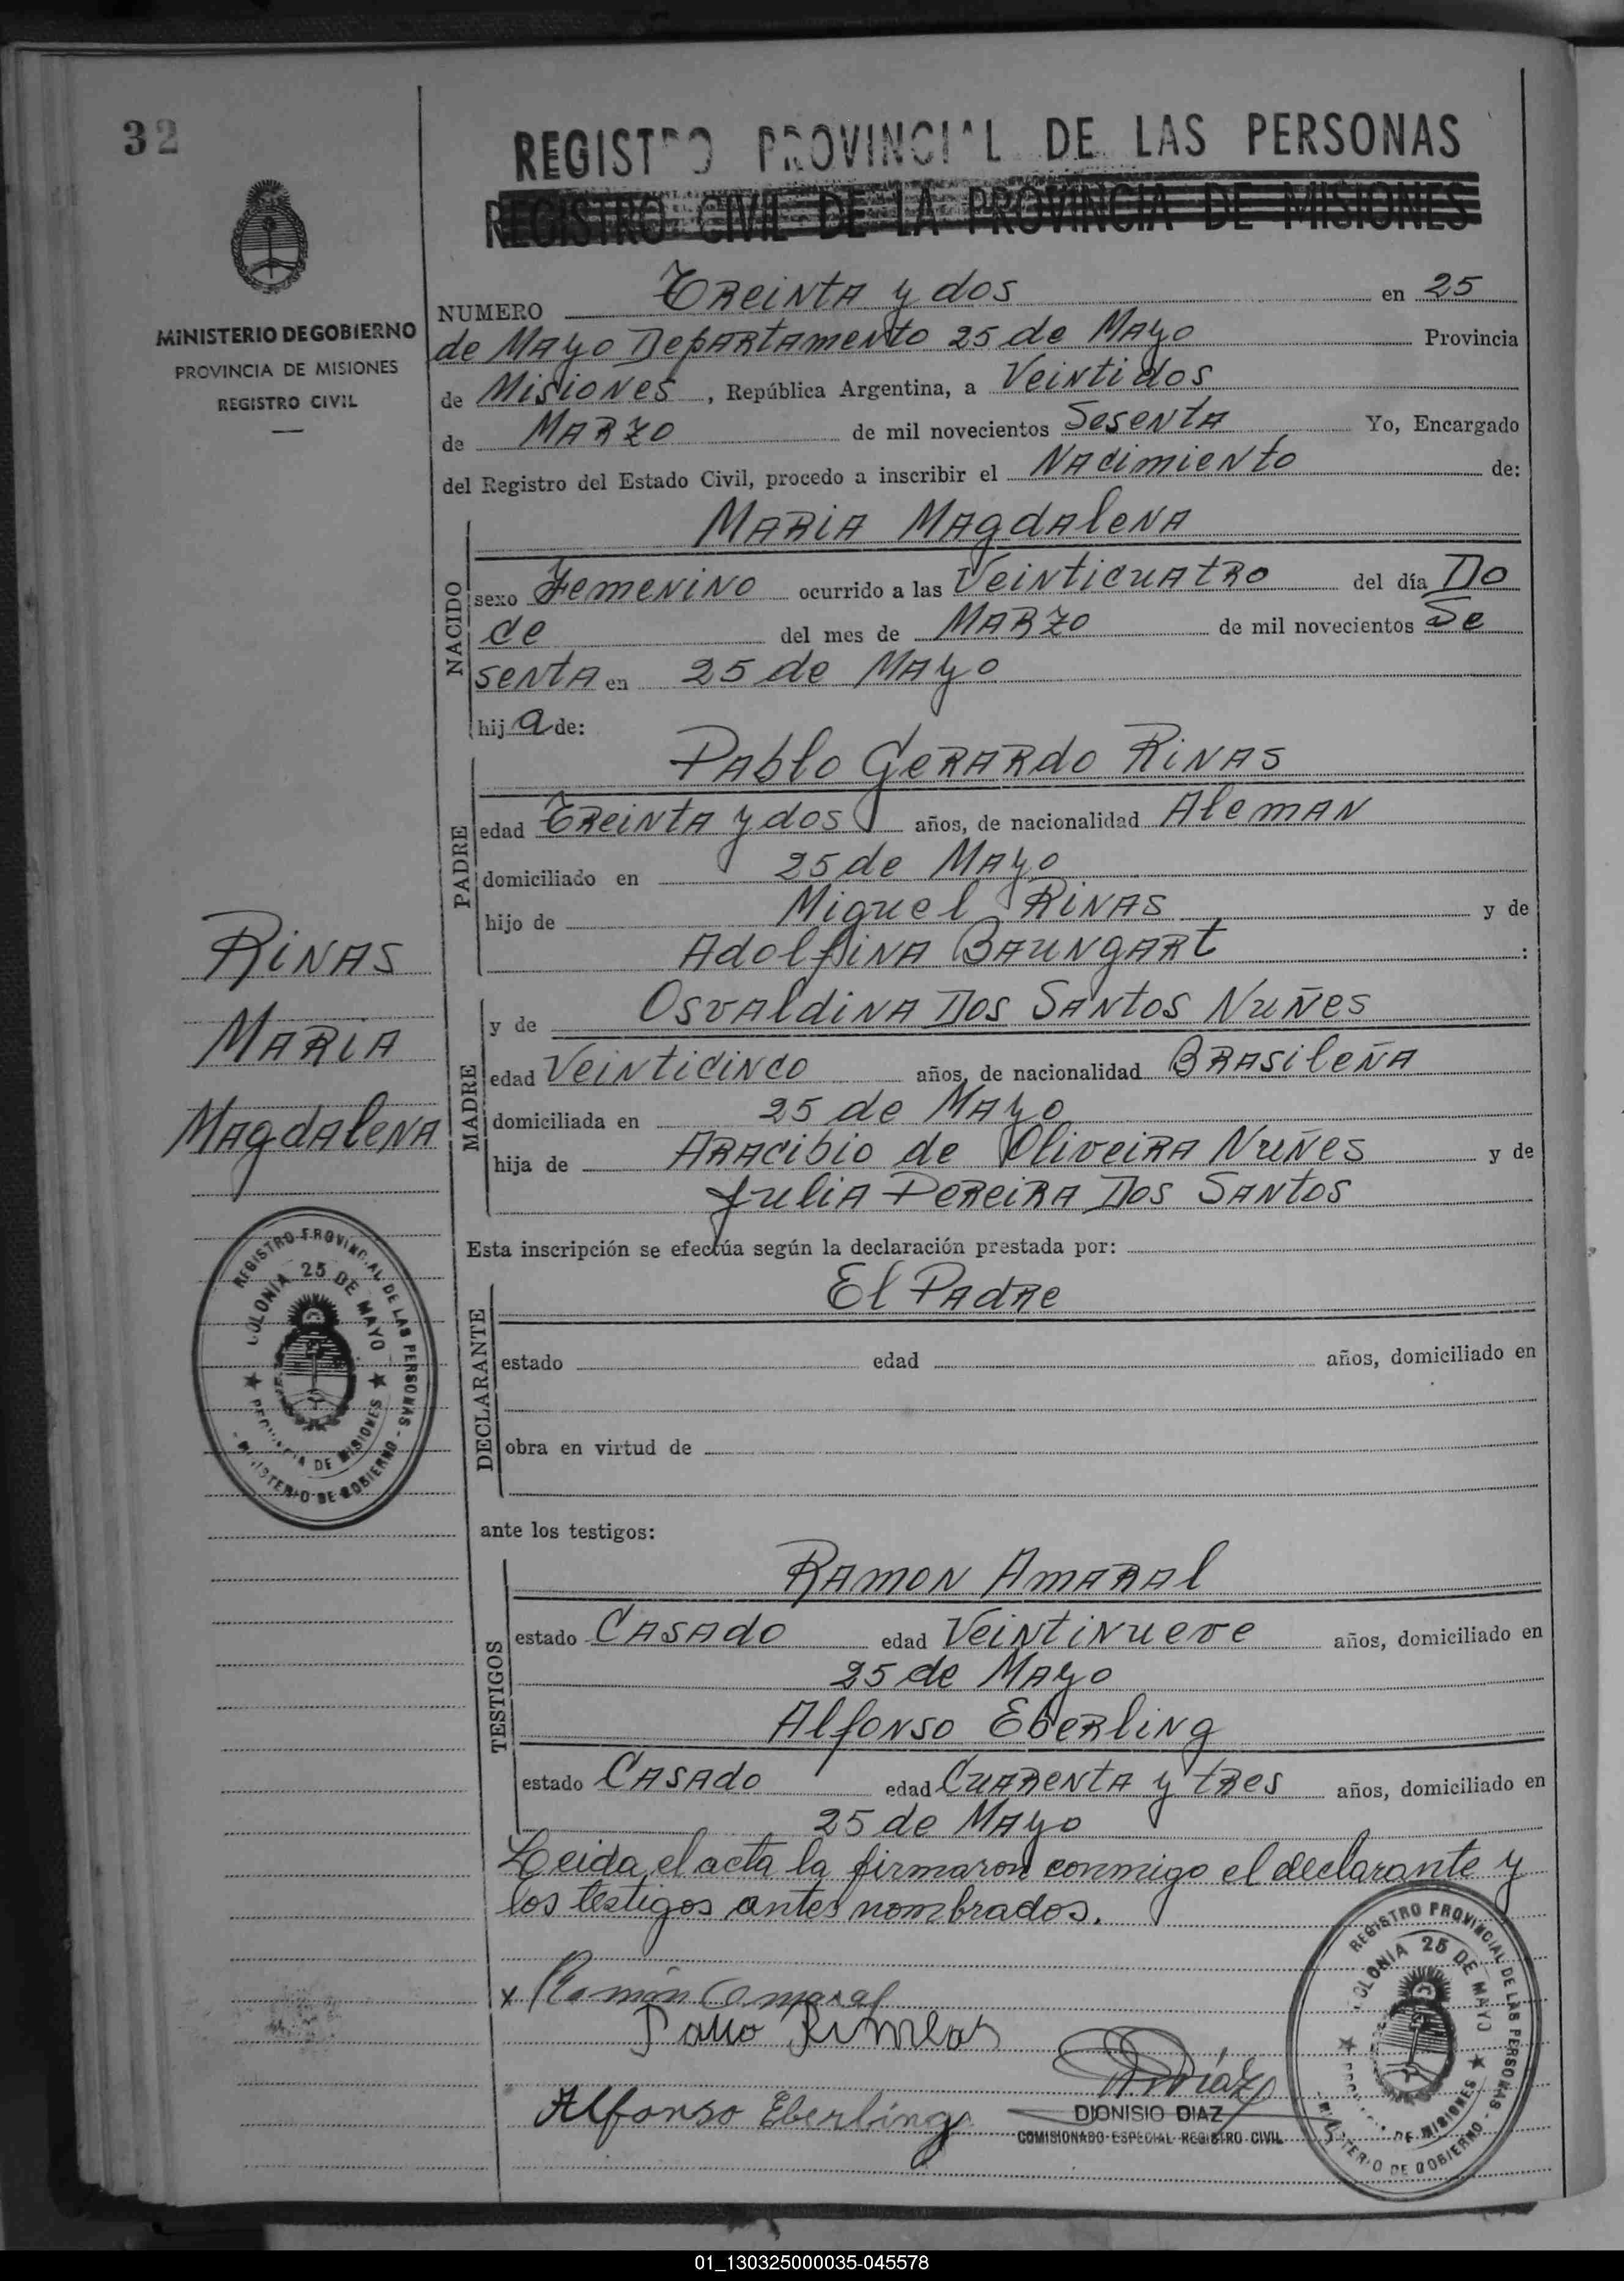 32
REGISTRO PROVINCIAL DE LAS PERSONAS
REGISTRO CIVIL DE LA PROVINCIA DE MISIONES
MINISTERIO DE GOBIERNO
PROVINCIA DE MISIONES
REGISTRO CIVIL
NUMERO Treinta y dos en 25
de Mayo Departamento 25 de Mayo Provincia
de Misiones, República Argentina, a Veintidos
de Marzo de mil novecientos Sesenta Yo, Encargado
del Registro del Estado Civil, procedo a inscribir el Nacimiento de:
NACIDO
Maria Magdalena
sexo Femenino ocurrido a las Veinticuatro del día Do
ce del mes de Marzo de mil novecientos Se
senta en 25 de Mayo
hija de:
PADRE
Pablo Gerardo Rinas
edad Treinta y dos años, de nacionalidad Aleman
domiciliado en 25 de Mayo
hijo de Miguel Rinas y de
Adolfina Baungart :
Rinas
Maria
Magdalena
MADRE
y de Osvaldina Dos Santos Nuñes
edad Veinticinco años, de nacionalidad Brasileña
domiciliada en 25 de Mayo
hija de Aracibio de Oliveira Nuñes y de
Julia Pereira Dos Santos
Esta inscripción se efectúa según la declaración prestada por:
DECLARANTE
El Padre
estado edad años, domiciliado en
obra en virtud de
REGISTRO PROVINCIAL DE LAS PERSONAS - MINISTERIO DE GOBIERNO -
COLONIA 25 DE MAYO
PROVINCIA DE MISIONES
ante los testigos:
TESTIGOS
Ramon Amaral
estado Casado edad Veintinueve años, domiciliado en
25 de Mayo
Alfonso Eberling
estado Casado edad Cuarenta y tres años, domiciliado en
25 de Mayo
Leida el acta la firmaron conmigo el declarante y
los testigos antes nombrados.
x Ramón Amaral
Alfonso Eberling
DIONISIO DIAZ
COMISIONADO ESPECIAL REGISTRO CIVIL
REGISTRO PROVINCIAL DE LAS PERSONAS - MINISTERIO DE GOBIERNO
COLONIA 25 DE MAYO
PROVINCIA DE MISIONES
01_130325000035-045578